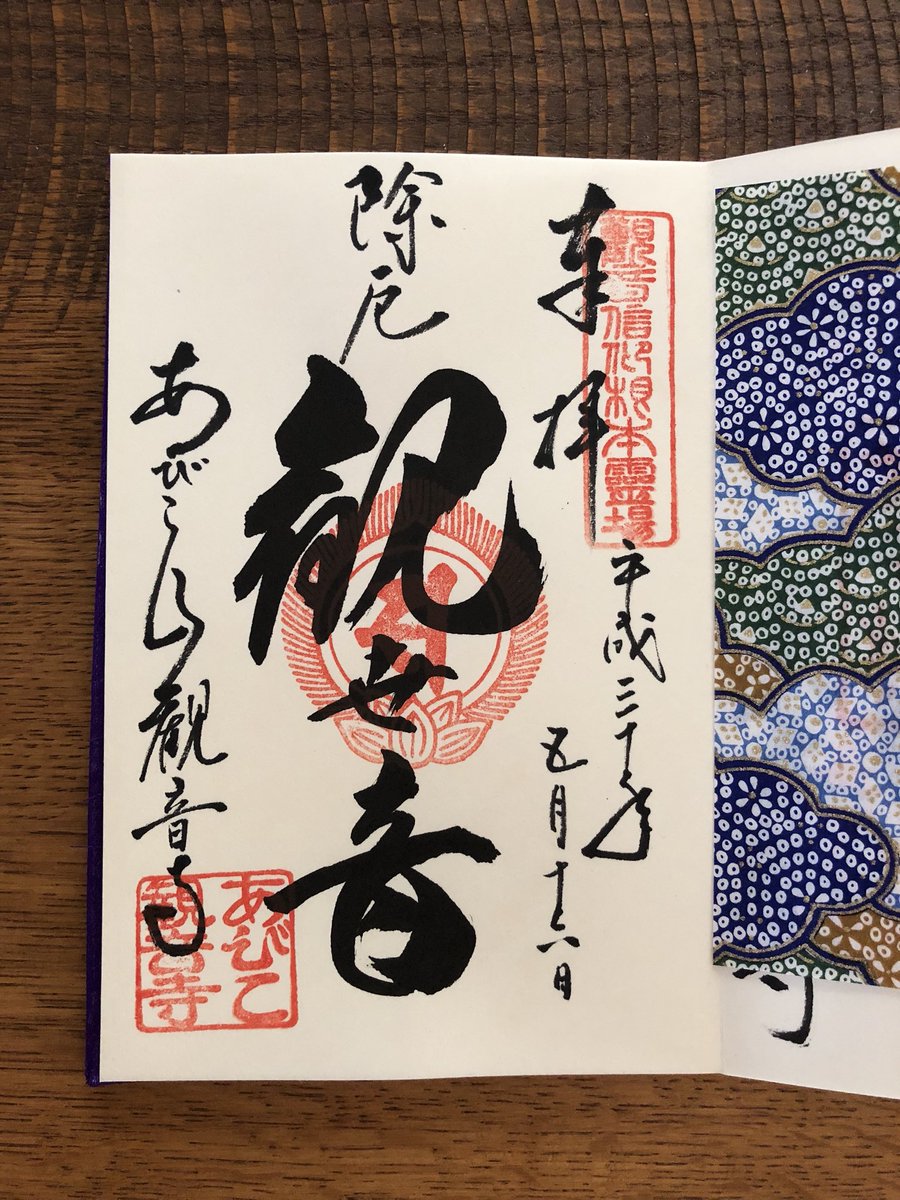 奉拝
観音信仰根本霊場
平成三十年
五月十六日
除厄
観世音
あびこ山観音寺
あびこ
観音寺